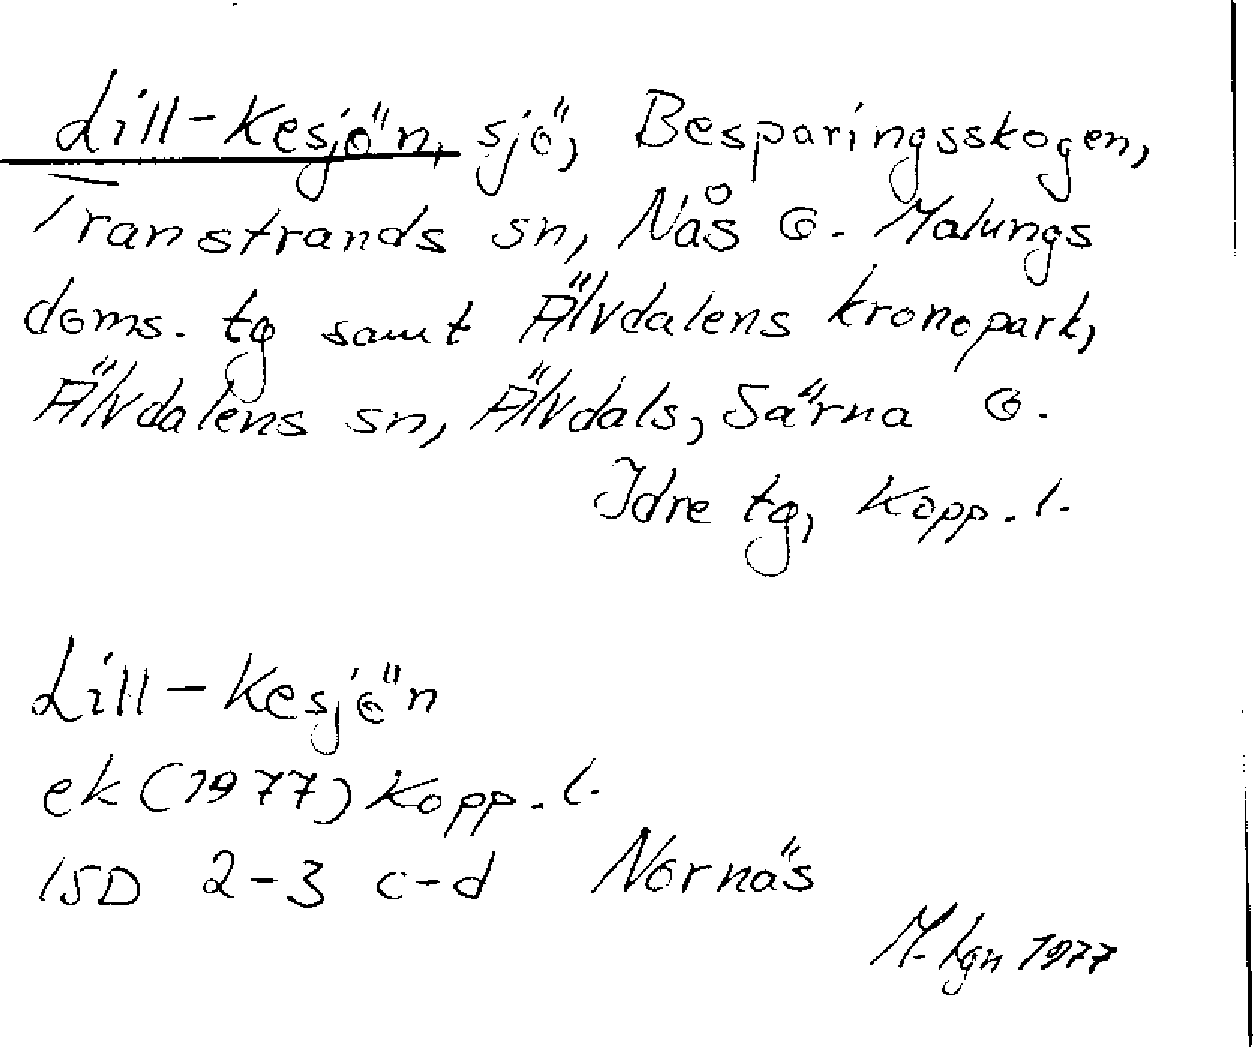 Lill-Kesjön, sjö, Besparingsskogen,
Transtrands sn, Nås o. Malungs
doms. tg samt Älvdalens kronopark,
Älvdalens sn, Älvdals, Särna o.
Idre tg, Kopp. l.
Lill-Kesjön
ek (1977) Kopp. l.
15D 2-3 c-d Nornäs
M. hgn 1977